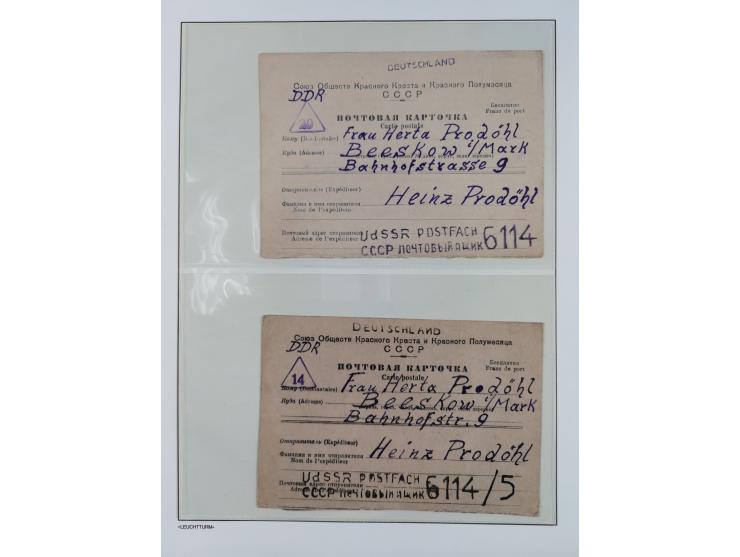 DEUTSCHLAND
Союз Обществ Красного Креста и Красного Полумесяца
СССР
DDR
Бесплатно
Franc de port
20
ПОЧТОВАЯ КАРТОЧКА
Carte postale
Кому (Destinataire) Frau Herta Prodöhl
Куда (Адрес) Beeskow i/Mark
Bahnhofstrasse 9
Отправитель (Expéditeur)
Фамилия и имя отправителя Heinz Prodöhl
Nom de l'expéditeur
Почтовый адрес отправителя UdSSR POSTFACH 6114
Adresse de l'expéditeur СССР ПОЧТОВЫЙ ЯЩИК
DEUTSCHLAND
Союз Обществ Красного Креста и Красного Полумесяца
СССР
DDR
Бесплатно
Franc de port
14
ПОЧТОВАЯ КАРТОЧКА
Carte postale
Кому (Destinataire) Frau Herta Prodöhl
Куда (Адрес) Beeskow i/Mark
Bahnhofstr. 9
Отправитель (Expéditeur)
Фамилия и имя отправителя Heinz Prodöhl
Nom de l'expéditeur
Почтовый адрес отправителя UdSSR POSTFACH 6114/5
СССР ПОЧТОВЫЙ ЯЩИК
«LEUCHTTURM»